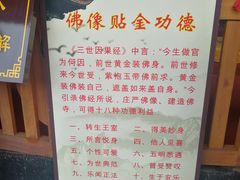 解
佛像贴金功德
《三世因果经》中言："今生做官
为何因，前世黄金装佛身。前世修
来今世受，紫袍玉带佛前求。黄金
装佛装自己，遮盖如来盖自身。"今
引录佛经所说，庄严佛像、建造佛
寺，可得十八种功德利益
一、转生王室 二、得美妙身
三、所言悦身 四、他人见喜
五、个性可爱 六、五明悉通
七、为世典范 八、普受赞叹
九、乐闻正法 十、生于富乐